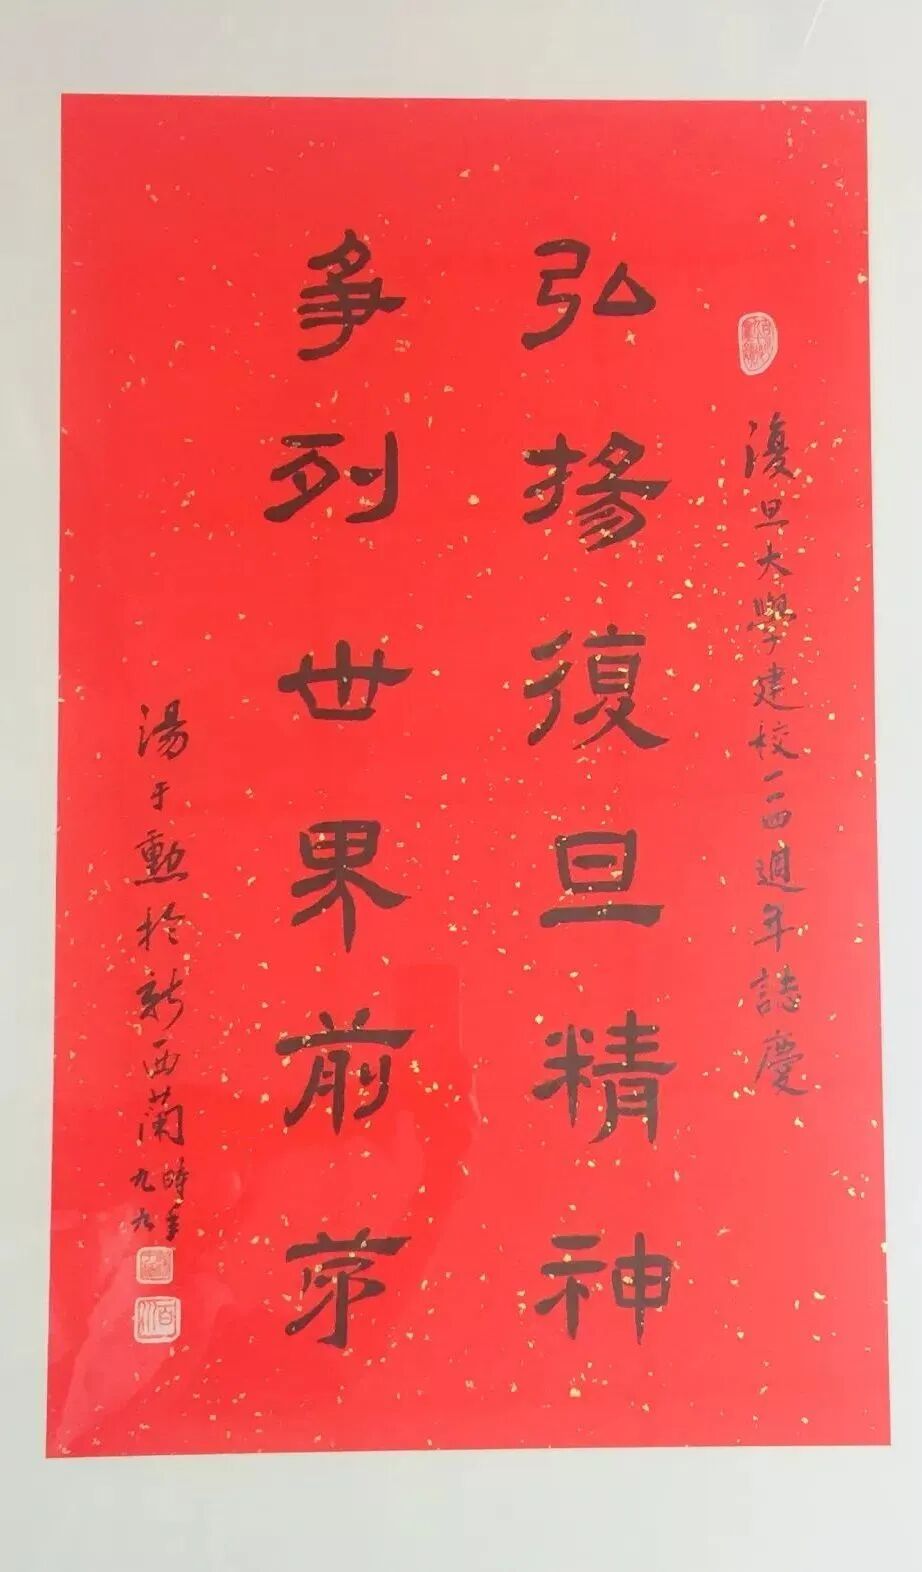 復旦大學建校一一四週年誌慶
弘揚復旦精神
爭列世界前茅
湯于勳於新西蘭時年九九